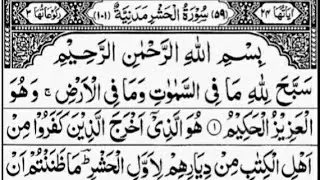 اٰیَاتُهَا ۲۴ (۵۹) سُوْرَةُ الْحَشْرِ مَدَنِيَّةٌ (۱۰۱) رُكُوْعَاتُهَا ۳
بِسْمِ اللّٰهِ الرَّحْمٰنِ الرَّحِيْمِ
سَبَّحَ لِلّٰهِ مَا فِي السَّمٰوٰتِ وَمَا فِي الْاَرْضِ ۚ وَهُوَ
الْعَزِيْزُ الْحَكِيْمُ ۝۱ هُوَ الَّذِيْۤ اَخْرَجَ الَّذِيْنَ كَفَرُوْا مِنْ
اَهْلِ الْكِتٰبِ مِنْ دِيَارِهِمْ لِاَوَّلِ الْحَشْرِ ؕ مَا ظَنَنْتُمْ اَنْ